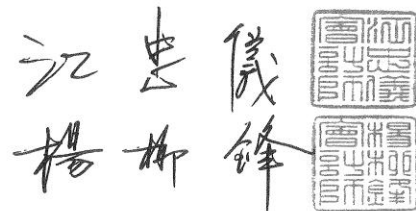 江忠儀
江忠儀會計師
楊柳鋒
楊柳鋒會計師